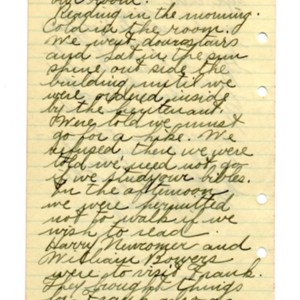 our room.
Reading in the morning.
Cold in the room.
We went downstairs
and sat in the sun
shine out side the
building until we
were ordered inside
by the lieutenant.
Were told we must
go for a hike. We
refused then we were
told we need not go
if we study our bibles.
In the afternoon
we were permitted
not to walk if we
wish to read.
Harry Newcomer and
William Bowers
were to visit Frank.
They brought things